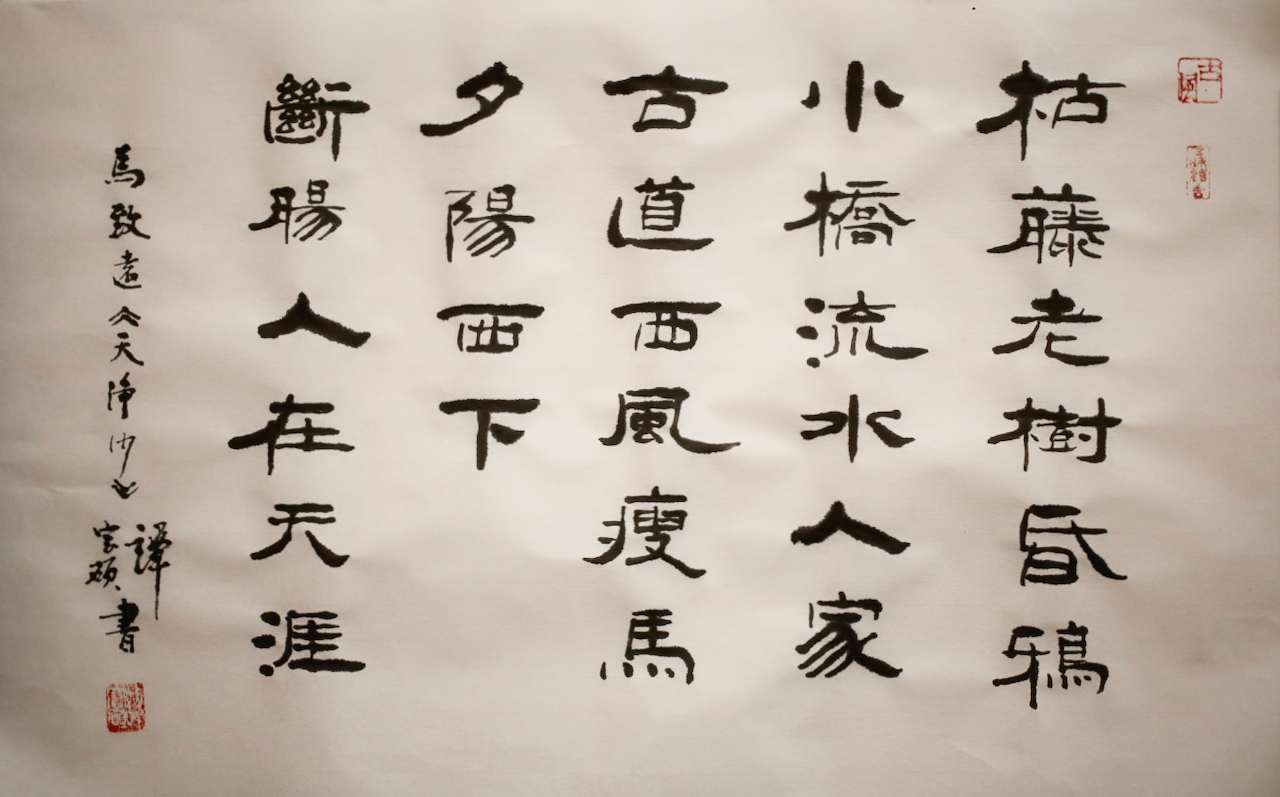 枯藤老樹昏鴉
小橋流水人家
古道西風瘦馬
夕陽西下
斷腸人在天涯
馬致遠《天淨沙》
譚家碩書